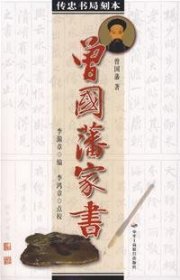 传忠书局刻本
曾国藩 著
曾國藩家書
李瀚章 编
李鸿章 点校